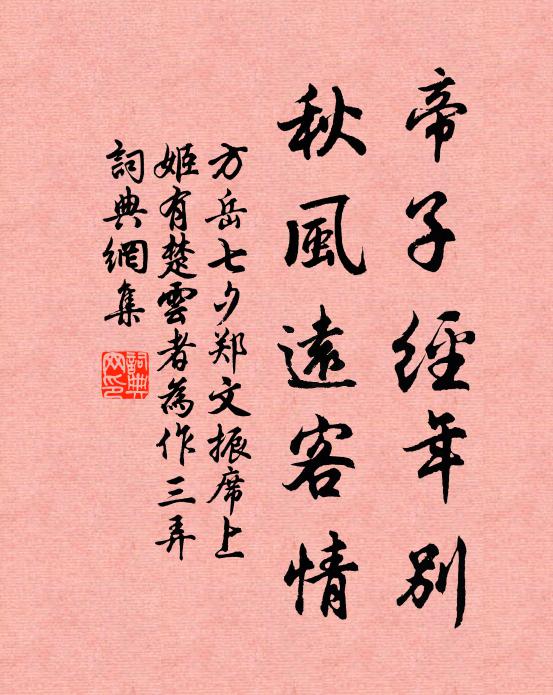 帝子經年別
秋風遠客情
方岳七夕郑文振席上
姬有楚雲者為作三弄
詞典網集
詞典網印